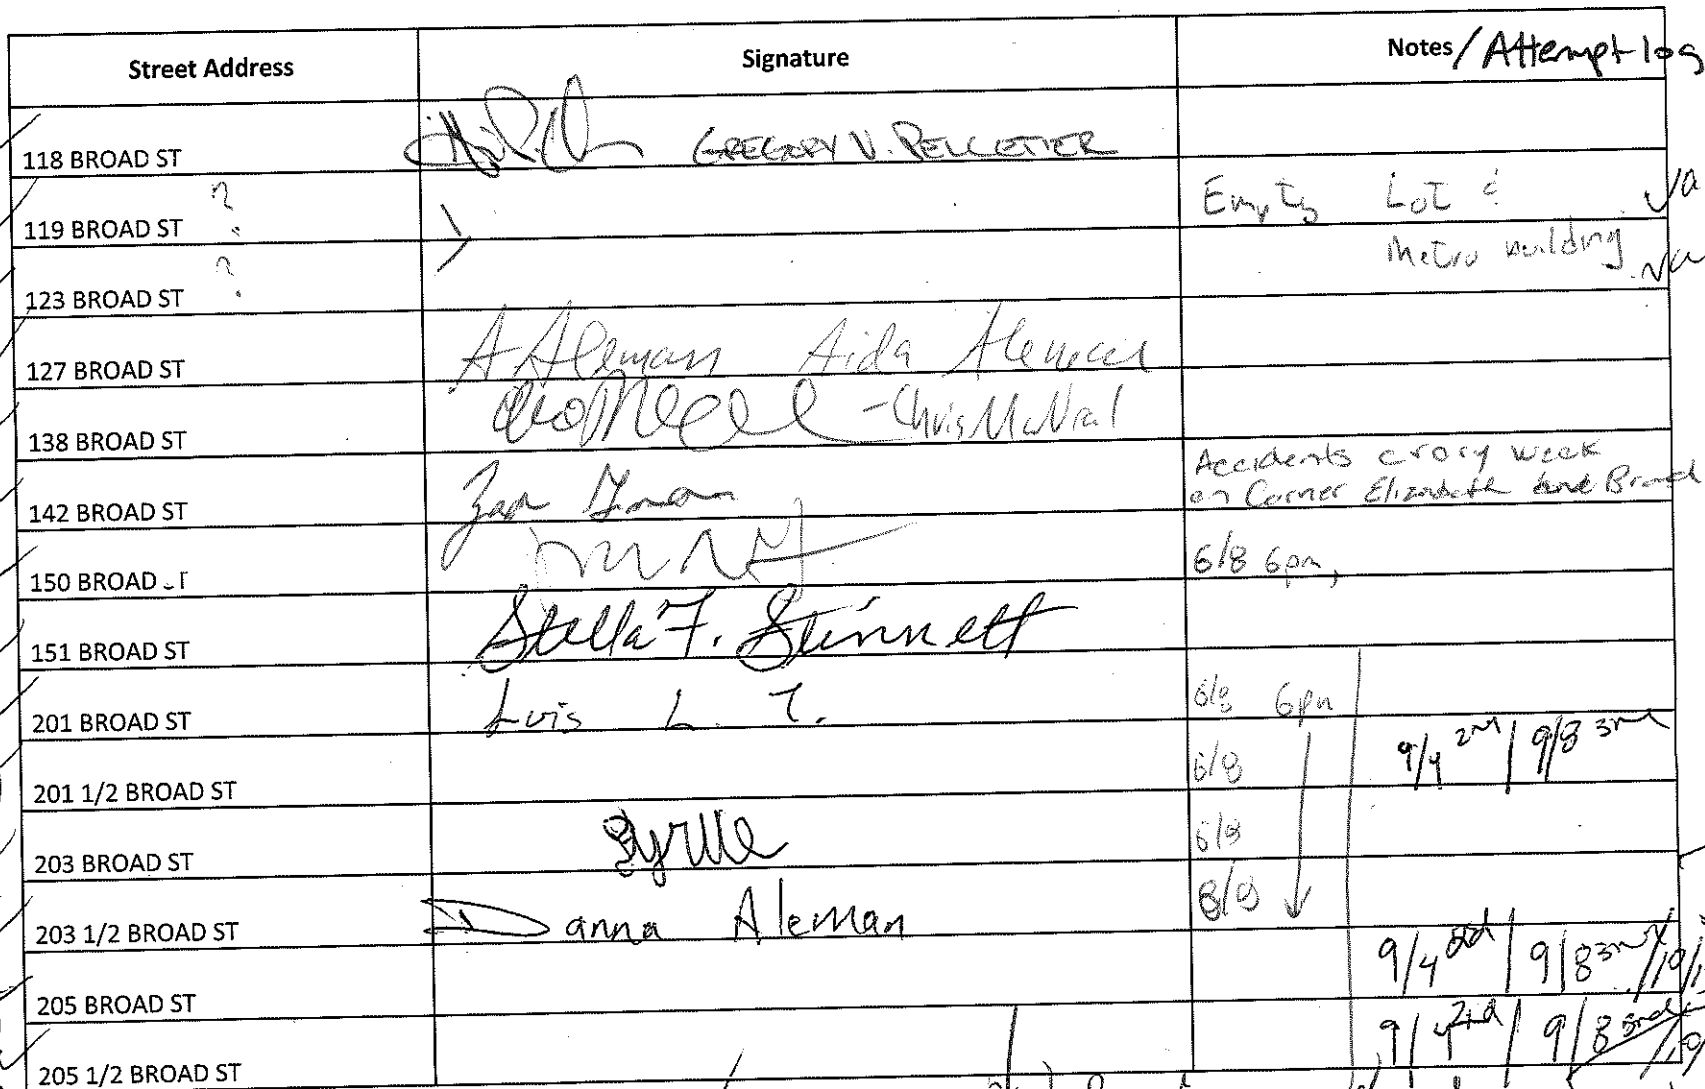 Street Address Signature Notes / Attempt log
118 BROAD ST GREGORY N. PELLETIER
119 BROAD ST ? Empty Lot &
123 BROAD ST ? Metro building
127 BROAD ST A Aleman Aida Aleman
138 BROAD ST - Chris McNeal
Accidents every week
142 BROAD ST on Corner Elizabeth and Broad
150 BROAD 6/8 6pm,
151 BROAD ST Stella F. Stinnett
201 BROAD ST Luis L. T. 6/8 6pm
201 1/2 BROAD ST 6/8 9/4 2nd / 9/8 3rd
203 BROAD ST 6/8
203 1/2 BROAD ST Danna Aleman 8/8
205 BROAD ST 9/4 2nd / 9/8 3rd
205 1/2 BROAD ST 9/4 2nd / 9/8 3rd